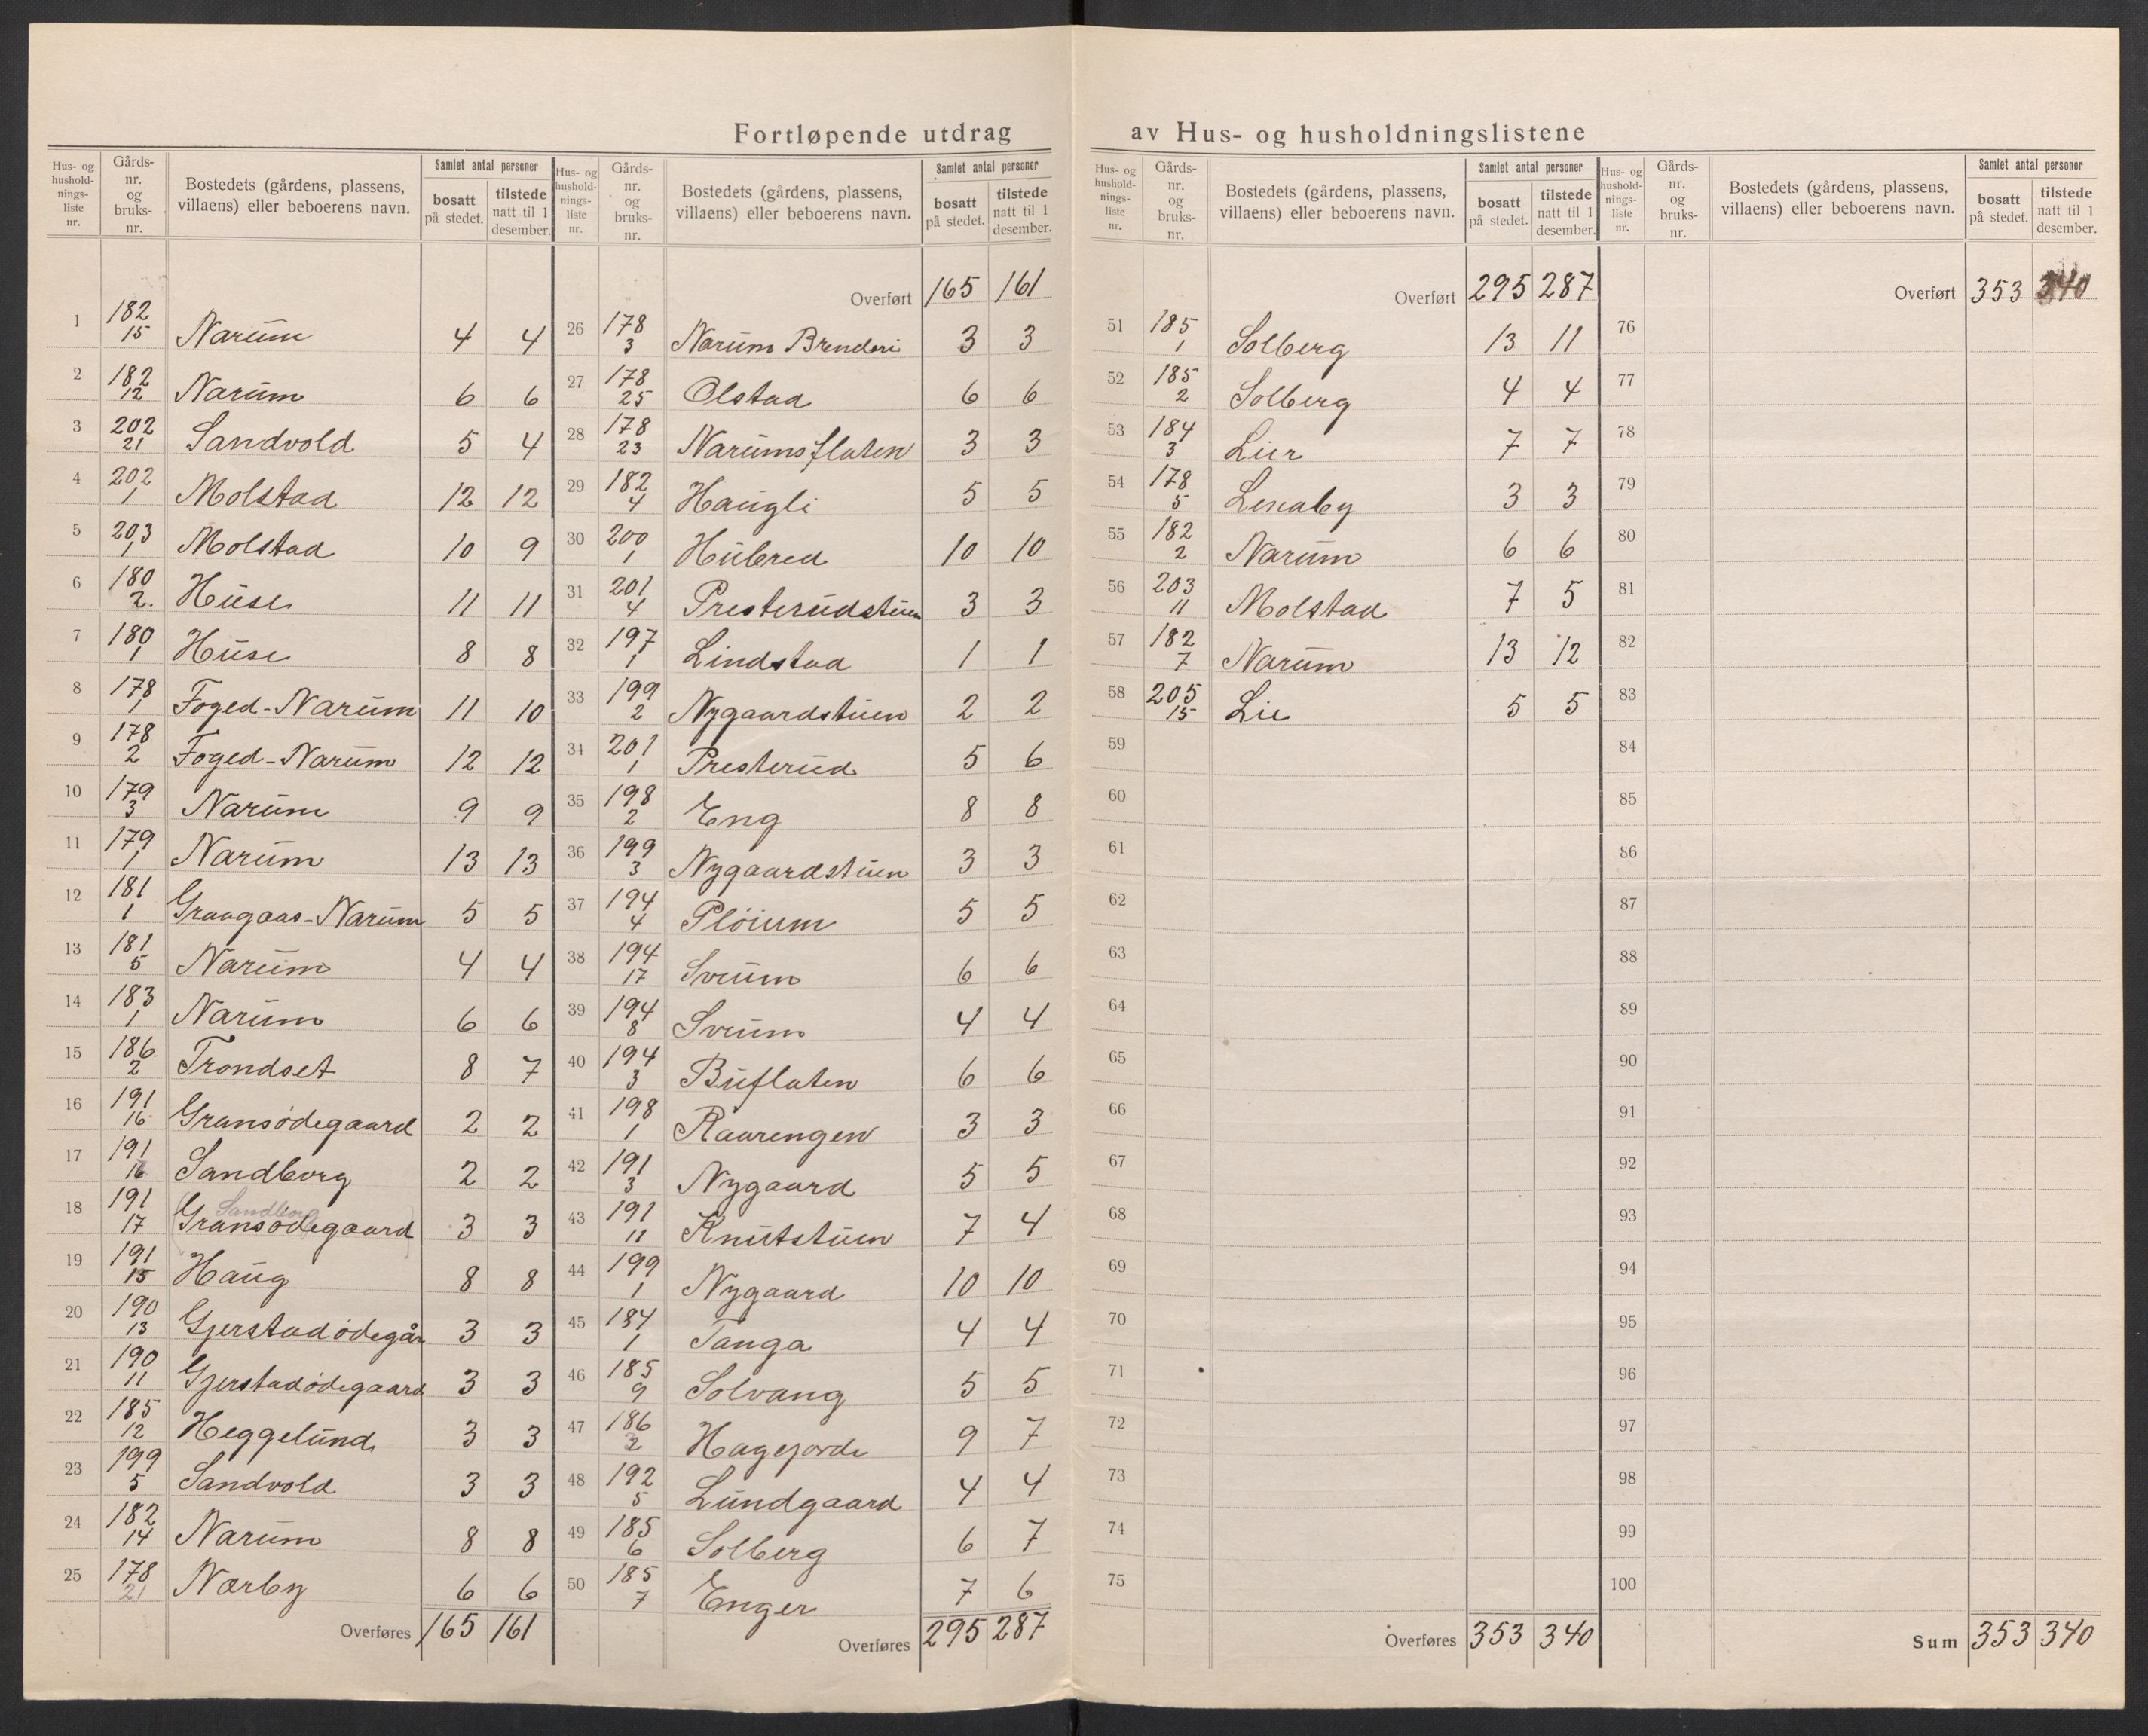 Fortløpende utdrag av Hus- og husholdningslistene
Hus- og hushold- nings- liste nr. | Gårds- nr. og bruks- nr. | Bostedets (gårdens, plassens, villaens) eller beboerens navn. | Samlet antal personer | bosatt på stedet. | tilstede natt til 1 desember.
1 182/15 Narum 4 4
2 182/12 Narum 6 6
3 202/21 Sandvold 5 4
4 202/1 Molstad 12 12
5 203/1 Molstad 10 9
6 180/2. Huse 11 11
7 180/1 Huse 8 8
8 178/1 Foged-Narum 11 10
9 178/2 Foged-Narum 12 12
10 179/3 Narum 9 9
11 179/1 Narum 13 13
12 181/1 Graagaas-Narum 5 5
13 181/5 Narum 4 4
14 183/1 Narum 6 6
15 186/2 Trondset 8 7
16 191/16 Gransødegaard 2 2
17 191/16 Sandborg 2 2
18 191/17 Sandborg (Gransødegaard) 3 3
19 191/15 Haug 8 8
20 190/13 Gjerstadødegår 3 3
21 190/11 Gjerstadødegaard 3 3
22 185/12 Heggelund 3 3
23 199/5 Sandvold 3 3
24 182/14 Narum 8 8
25 178/21 Nørby 6 6
Overføres 165 161
Hus- og hushold- nings- liste nr. | Gårds- nr. og bruks- nr. | Bostedets (gårdens, plassens, villaens) eller beboerens navn. | Samlet antal personer | bosatt på stedet. | tilstede natt til 1 desember.
Overført 165 161
26 178/3 Narum Brenderi 3 3
27 178/25 Olstad 6 6
28 178/23 Narumsflaten 3 3
29 182/4 Haugli 5 5
30 200/1 Hubred 10 10
31 201/4 Presterudstuen 3 3
32 197/1 Lindstad 1 1
33 199/2 Nygaardstuen 2 2
34 201/1 Presterud 5 6
35 198/2 Eng 8 8
36 199/3 Nygaardstuen 3 3
37 194/4 Pløium 5 5
38 194/17 Sveum 6 6
39 194/8 Sveum 4 4
40 194/3 Buflaten 6 6
41 198/1 Raarengen 3 3
42 191/3 Nygaard 5 5
43 191/11 Knutstuen 7 4
44 199/1 Nygaard 10 10
45 184/1 Tanga 4 4
46 185/9 Solvang 5 5
47 186/2 Hagejorde 9 7
48 192/5 Lundgaard 4 4
49 185/6 Solberg 6 7
50 185/7 Enger 7 6
Overføres 295 287
Hus- og hushold- nings- liste nr. | Gårds- nr. og bruks- nr. | Bostedets (gårdens, plassens, villaens) eller beboerens navn. | Samlet antal personer | bosatt på stedet. | tilstede natt til 1 desember.
Overført 295 287
51 185/1 Solberg 13 11
52 185/2 Solberg 4 4
53 184/3 Lier 7 7
54 178/5 Lenaby 3 3
55 182/2 Narum 6 6
56 203/11 Molstad 7 5
57 182/7 Narum 13 12
58 205/15 Lie 5 5
59
60
61
62
63
64
65
66
67
68
69
70
71
72
73
74
75
Overføres 353 340
Hus- og hushold- nings- liste nr. | Gårds- nr. og bruks- nr. | Bostedets (gårdens, plassens, villaens) eller beboerens navn. | Samlet antal personer | bosatt på stedet. | tilstede natt til 1 desember.
Overført 353 340
76
77
78
79
80
81
82
83
84
85
86
87
88
89
90
91
92
93
94
95
96
97
98
99
100
Sum 353 340